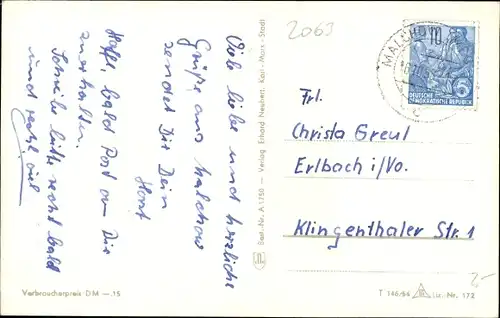 Viele liebe und herzliche
Grüße aus Malchow
sendet Dir Dein
Horst
Hoffe, bald Post von Dir
zu erhalten.
Schreibe bitte recht bald
und recht viel
Verbraucherpreis DM —.15
Best.-Nr. A 1750 — Verlag Erhard Neubert, Karl-Marx-Stadt
2063
MALCHOW
DEUTSCHE
DEMOKRATISCHE REPUBLIK
Frl.
Christa Greul
Erlbach i/Vo.
Klingenthaler Str. 1
2,-
T 146/54
Nr. 172